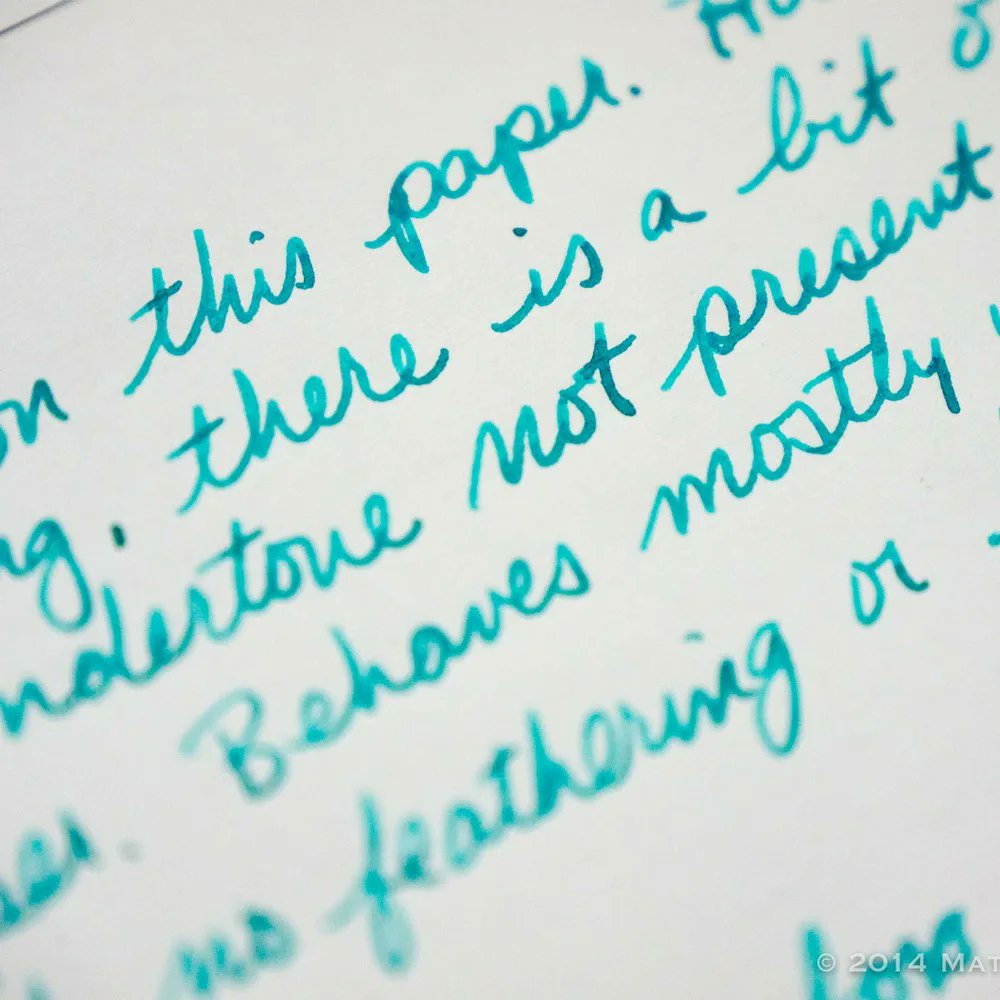 on this paper.
there is a bit
undertone not present
Behaves mostly
no feathering or
© 2014 MAT